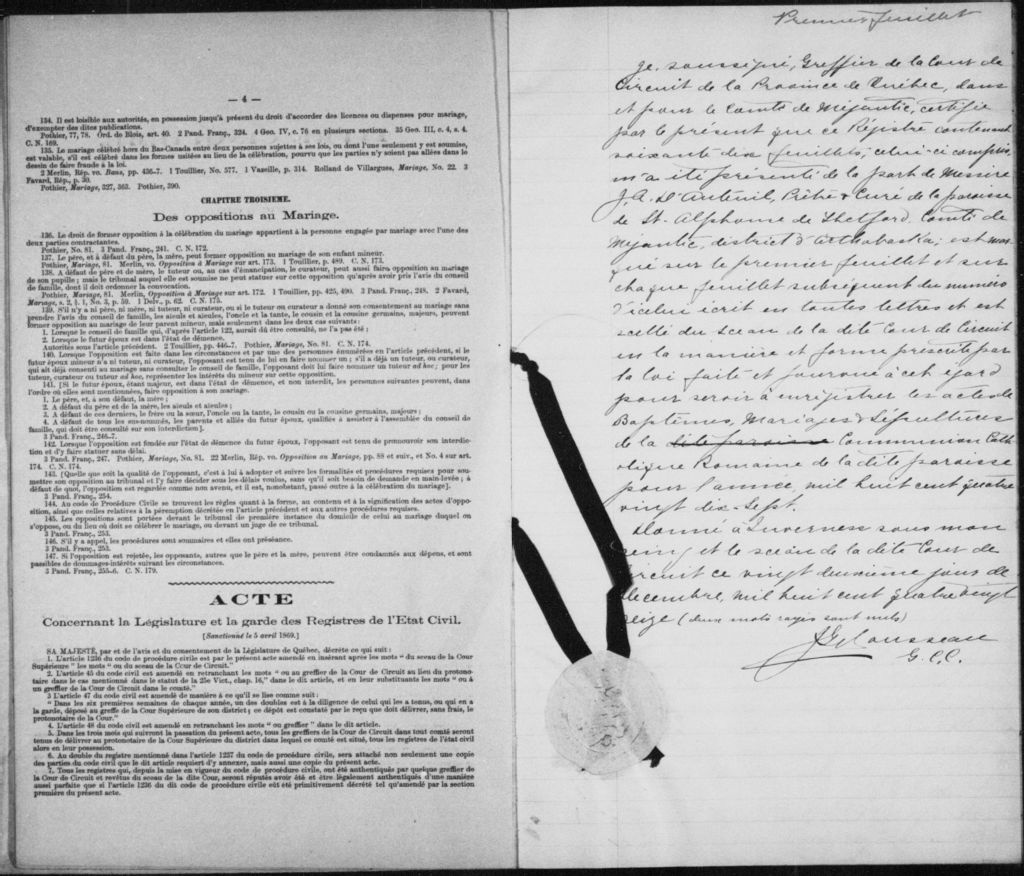 — 4 —
134. Il est loisible aux autorités, en possession jusqu'à présent du droit d'accorder des licences ou dispenses pour mariage,
d'exempter des dites publications.
Pothier, 77, 78. Ord. de Blois, art. 40. 2 Pand. Franç., 324. 4 Geo. IV, c. 76 en plusieurs sections. 35 Geo. III, c. 4, s. 4.
C. N. 169.
135. Le mariage célébré hors du Bas-Canada entre deux personnes sujettes à ses lois, ou dont l'une seulement y est soumise,
est valable, s'il est célébré dans les formes usitées au lieu de la célébration, pourvu que les parties n'y soient pas allées dans le
dessein de faire fraude à la loi.
2 Merlin, Rép. vo. Bans, pp. 436-7. 1 Touillier, No. 577. 1 Vazeille, p. 314. Rolland de Villargues, Mariage, No. 22. 3
Favard, Rép., p. 30.
Pothier, Mariage, 327, 363. Pothier, 390.
CHAPITRE TROISIEME.
Des oppositions au Mariage.
136. Le droit de former opposition à la célébration du mariage appartient à la personne engagée par mariage avec l'une des
deux parties contractantes.
Pothier, No. 81. 3 Pand. Franç., 241. C. N. 172.
137. Le père, et à défaut du père, la mère, peut former opposition au mariage de son enfant mineur.
Pothier, Mariage, 81. Merlin, vo. Opposition à Mariage sur art. 173. 1 Touillier, p. 489. C. N. 173.
138. A défaut de père et de mère, le tuteur ou, au cas d'émancipation, le curateur, peut aussi faire opposition au mariage de
son pupille; mais le tribunal auquel elle est soumise ne peut statuer sur cette opposition qu'après avoir pris l'avis du conseil
de famille, dont il doit ordonner la convocation.
Pothier, Mariage, 81. Merlin, Opposition à Mariage sur art. 172. 1 Touillier, pp. 425, 490. 3 Pand. Franç., 248. 2 Favard,
Mariage, s. 2, § 1, No. 3, p. 59. 1 Delv., p. 62. C. N. 175.
139. S'il n'y a ni père, ni mère, ni tuteur, ni curateur, ou si le tuteur ou curateur a donné son consentement au mariage sans
prendre l'avis du conseil de famille, les aïeuls et aïeules, l'oncle et la tante, le cousin et la cousine germains, majeurs, peuvent
former opposition au mariage de leur parent mineur, mais seulement dans les deux cas suivants:
1. Lorsque le conseil de famille qui, d'après l'article 122, aurait dû être consulté, ne l'a pas été;
2. Lorsque le futur époux est dans l'état de démence.
Autorités sous l'article précédent. 2 Touillier, pp. 446-7. Pothier, Mariage, No. 81. C. N. 174.
140. Lorsque l'opposition est faite dans les circonstances et par une des personnes énumérées en l'article précédent, si le
futur époux mineur n'a ni tuteur, ni curateur, l'opposant est tenu de lui en faire nommer un; s'il a déjà un tuteur, ou curateur,
qui ait déjà consenti au mariage sans consulter le conseil de famille, l'opposant doit lui faire nommer un tuteur ad hoc; pour les
tuteur, curateur ou tuteur ad hoc, représenter les intérêts du mineur sur cette opposition.
141. [Si le futur époux, étant majeur, est dans l'état de démence, et non interdit, les personnes suivantes peuvent, dans
l'ordre où elles sont mentionnées, faire opposition à son mariage.
1. Le père, et, à son défaut, la mère;
2. A défaut du père et de la mère, les aïeuls et aïeules;
3. A défaut de ces derniers, le frère ou la sœur, l'oncle ou la tante, le cousin ou la cousine germains, majeurs;
4. A défaut de tous les sus-nommés, les parents et alliés du futur époux, qualifiés à assister à l'assemblée du conseil de
famille, qui doit être consulté sur son interdiction].
3 Pand. Franç., 246-7.
142. Lorsque l'opposition est fondée sur l'état de démence du futur époux, l'opposant est tenu de promouvoir son interdic-
tion et d'y faire statuer sans délai.
3 Pand. Franç., 247. Pothier, Mariage, No. 81. 22 Merlin, Rép. vo. Opposition au Mariage, pp. 88 et suiv., et No. 4 sur art.
174. C. N. 174.
143. [Quelle que soit la qualité de l'opposant, c'est à lui à adopter et suivre les formalités et procédures requises pour sou-
mettre son opposition au tribunal et l'y faire décider sous les délais voulus, sans qu'il soit besoin de demande en main-levée; à
défaut de quoi, l'opposition est regardée comme non avenu, et il est, nonobstant, passé outre à la célébration du mariage].
3 Pand. Franç., 254.
144. Au code de Procédure Civile se trouvent les règles quant à la forme, au contenu et à la signification des actes d'oppo-
sition, ainsi que celles relatives à la péremption décrétée en l'article précédent et aux autres procédures requises.
145. Les oppositions sont portées devant le tribunal de première instance du domicile de celui au mariage duquel on
s'oppose, ou du lieu où doit se célébrer le mariage, ou devant un juge de ce tribunal.
3 Pand. Franç., 253.
146. S'il y a appel, les procédures sont sommaires et elles ont préséance.
3 Pand. Franç., 253.
147. Si l'opposition est rejetée, les opposants, autres que le père et la mère, peuvent être condamnés aux dépens, et sont
passibles de dommages-intérêts suivant les circonstances.
3 Pand. Franç., 255-6. C. N. 179.
ACTE
Concernant la Législature et la garde des Registres de l'Etat Civil.
[Sanctionné le 5 avril 1869.]
SA MAJESTÉ, par et de l'avis et du consentement de la Législature de Québec, décrète ce qui suit:
1. L'article 1236 du code de procédure civile est par le présent acte amendé en insérant après les mots "du sceau de la Cour
Supérieure" les mots "ou du sceau de la Cour de Circuit."
2. L'article 45 du code civil est amendé en retranchant les mots "ou au greffier de la Cour de Circuit au lieu du protono-
taire dans le cas mentionné dans le statut de la 25e Vict., chap. 16," dans le dit article, et en leur substituants les mots "ou à
un greffier de la Cour de Circuit dans le comté."
3 L'article 47 du code civil est amendé de manière à ce qu'il se lise comme suit:
"Dans les six premières semaines de chaque année, un des doubles est à la diligence de celui qui les a tenus, ou qui en a
la garde, déposé au greffe de la Cour Supérieure de son district; ce dépôt est constaté par le reçu que doit délivrer, sans frais, le
protonotaire de la Cour."
4. L'article 48 du code civil est amendé en retranchant les mots "ou greffier" dans le dit article.
5. Dans les trois mois qui suivront la passation du présent acte, tous les greffiers de la Cour de Circuit dans tout comté seront
tenus de délivrer au protonotaire de la Cour Supérieure du district dans lequel ce comté est situé, tous les registres de l'état civil
alors en leur possession.
6. Au double du registre mentionné dans l'article 1237 du code de procédure civile, sera attaché non seulement une copie
des parties du code civil que le dit article requiert d'y annexer, mais aussi une copie du présent acte.
7. Tous les registres qui, depuis la mise en vigueur du code de procédure civile, ont été authentiqués par quelque greffier de
la Cour de Circuit et revêtus du sceau de la dite Cour, seront réputés avoir été et être légalement authentiqués d'une manière
aussi parfaite que si l'article 1236 du dit code de procédure civile eût été primitivement décrété tel qu'amendé par la section
première du présent acte.
Premier feuillet
Je, soussigné, Greffier de la Cour de
Circuit de la Province de Québec, dans
et pour le Comté de Mégantic, certifie
par le présent que ce Régistre contenant
soixante dix feuillets, celui-ci compris,
m'a été présenté de la part de Messire
J. A. D'Auteuil, Prêtre & Curé de la paroisse
de St. Alphonse de Thetford, Comté de
Mégantic, district d'Arthabaska; est mar-
qué sur le premier feuillet et sur
chaque feuillet subséquent du numéro
d'icelui écrit en toutes lettres et est
scellé du sceau de la dite Cour de Circuit
en la manière et forme prescrite par
la loi faite et pourvue à cet égard
pour servir à enregistrer les actes de
Baptêmes, Mariages & Sépultures
de la dite paroisse Communion Cath-
olique Romaine de la dite paroisse
pour l'année mil huit cent quatre
vingt dix-sept.
Donné à Inverness sous mon
seing et le sceau de la dite Cour de
Circuit ce vingt deuxième jour de
Décembre, mil huit cent quatre vingt
seize (deux mots rayés sont nuls)
Rousseau
G. C. C.